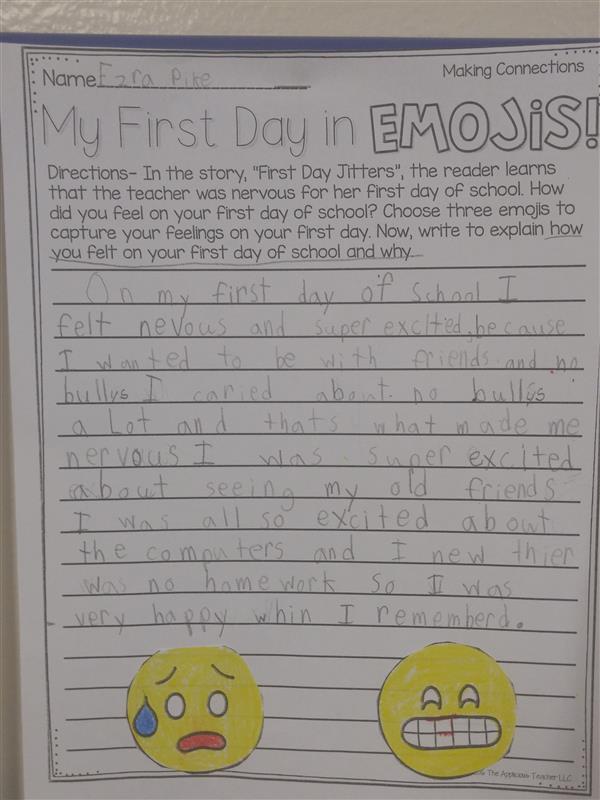 Name Ezra Pike
Making Connections
My First Day in EMOJiS!
Directions- In the story, "First Day Jitters", the reader learns
that the teacher was nervous for her first day of school. How
did you feel on your first day of school? Choose three emojis to
capture your feelings on your first day. Now, write to explain how
you felt on your first day of school and why.
On my first day of school I
felt nevous and super excited, because
I wanted to be with friends and no
bullys I caried about no bullys
a Lot and thats what made me
nervous I was super excited
about seeing my old friends
I was all so excited about
the computers and I new thier
was no homework so I was
very happy whin I rememberd.
The Applicious Teacher LLC